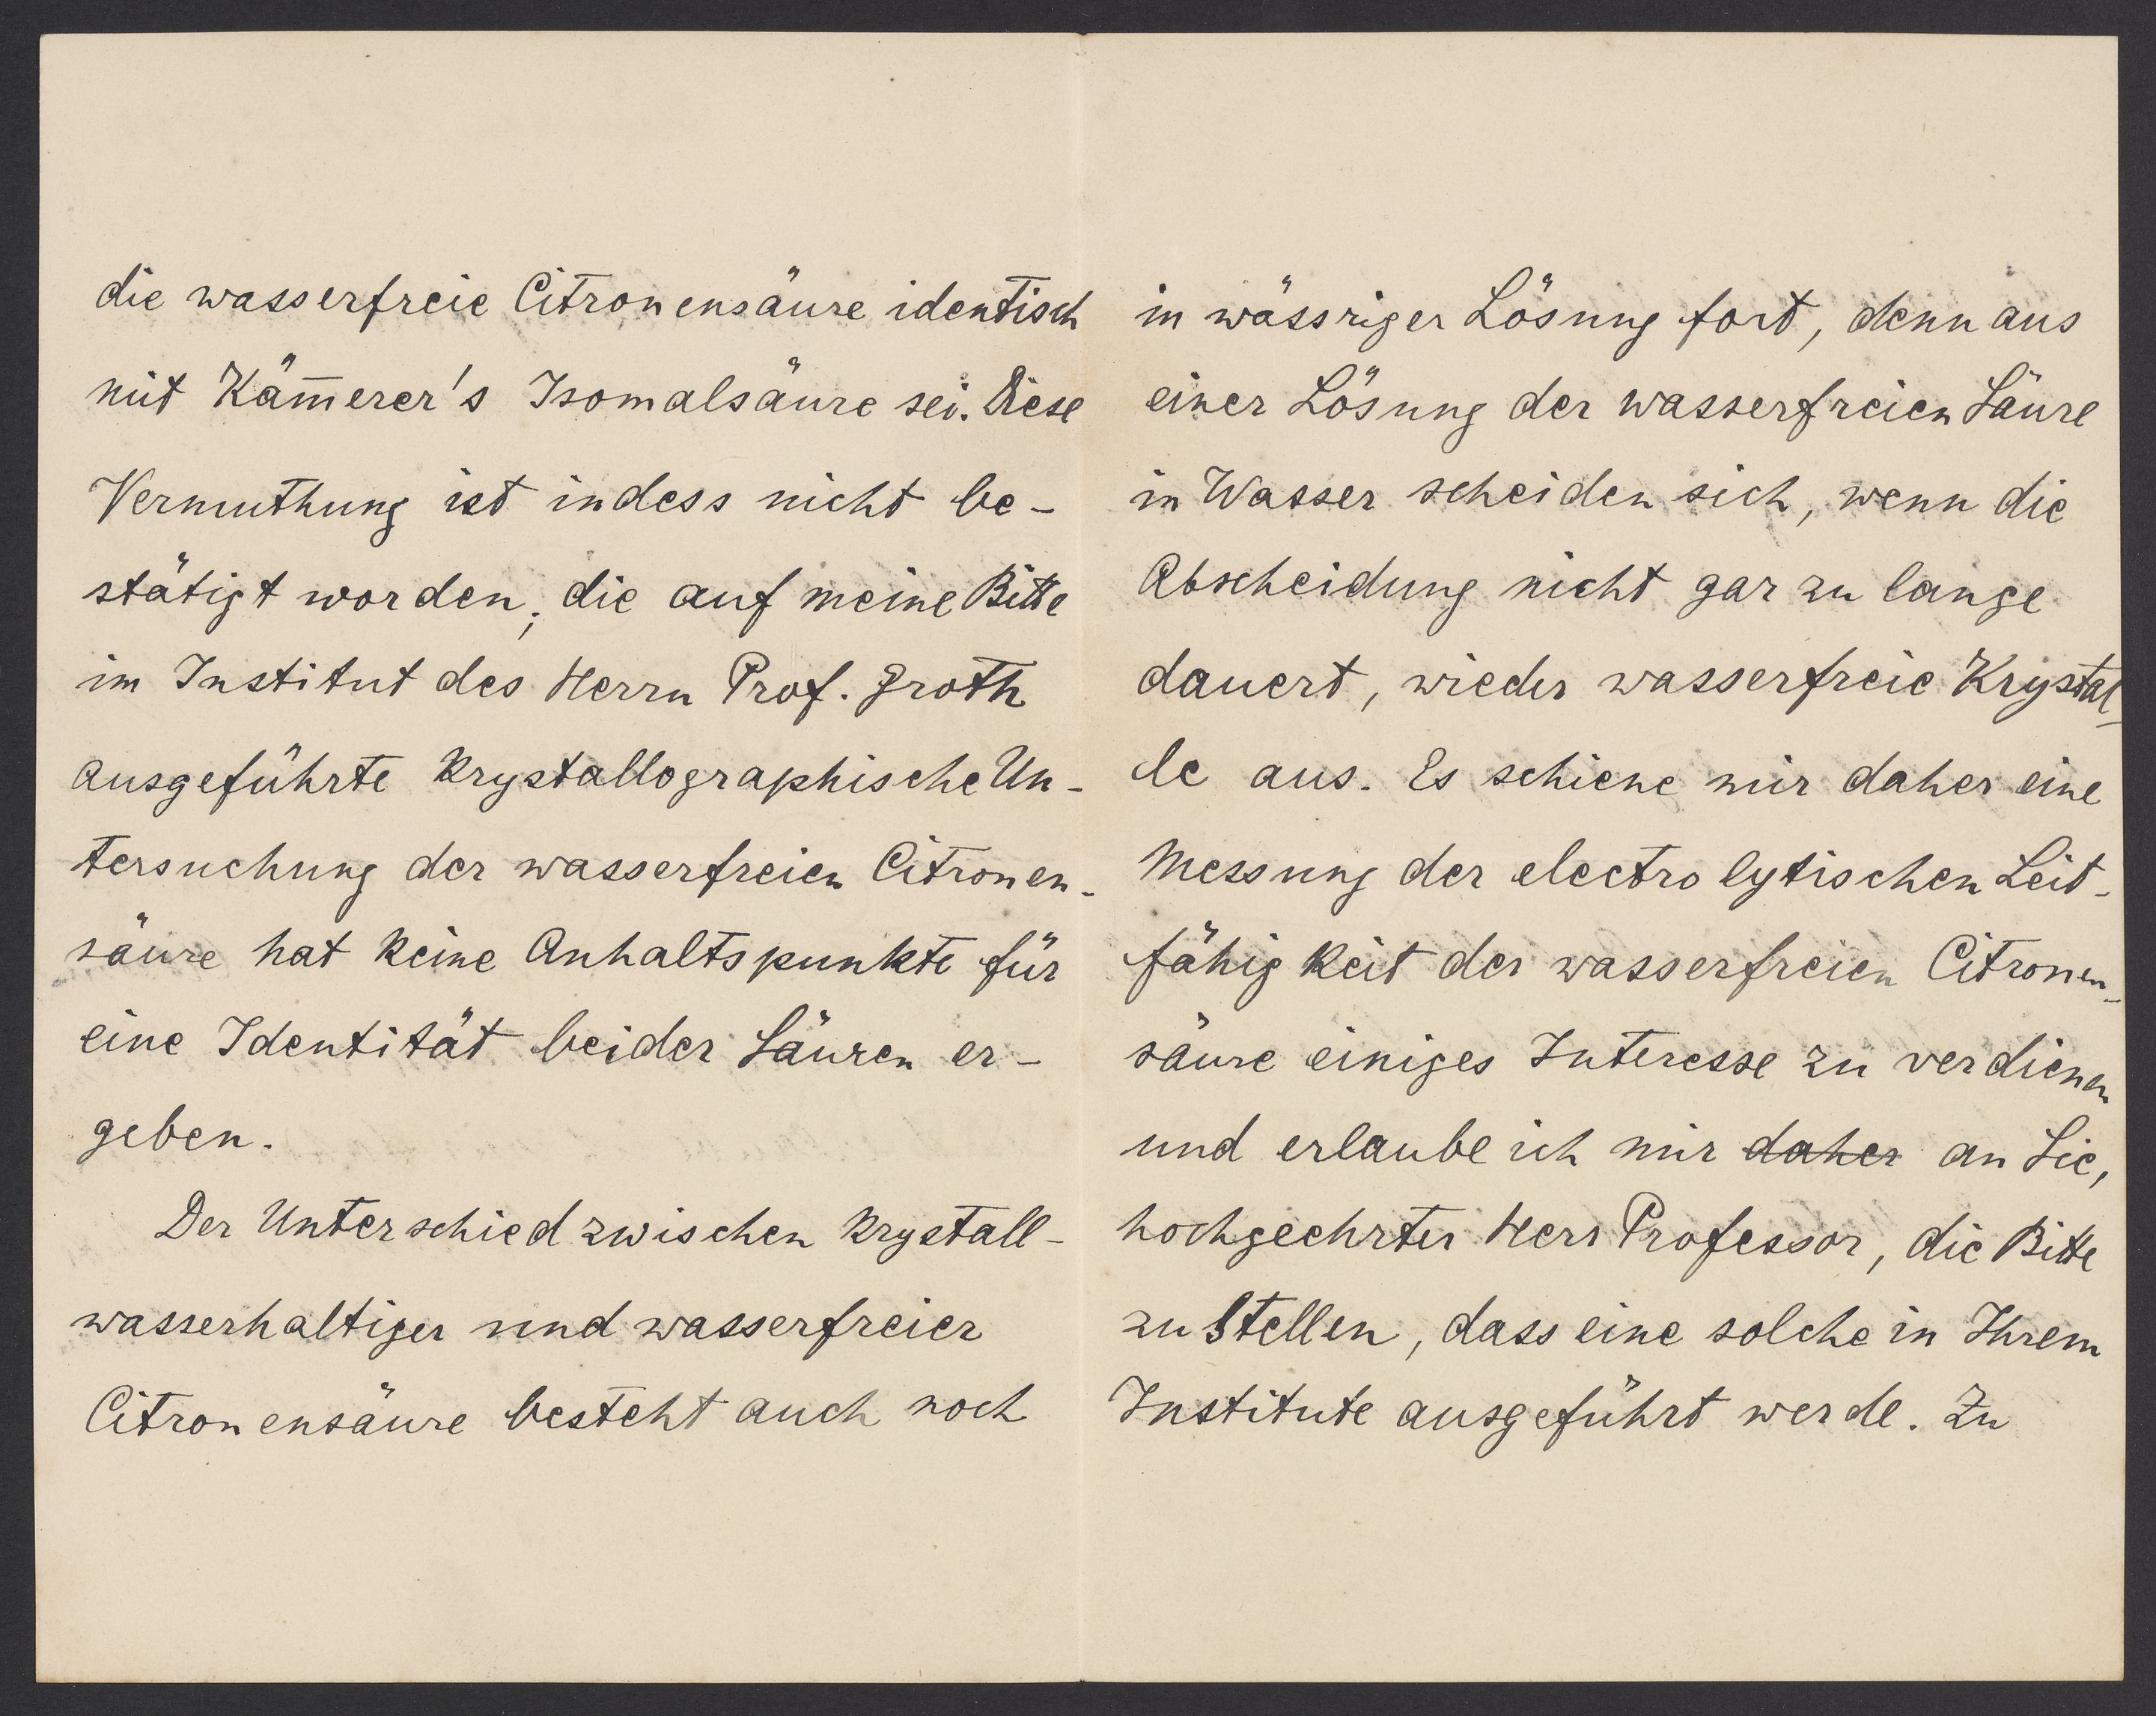 die wasserfreie Citronensäure identisch
mit Käm̄erer's Isomalsäure sei. Diese
Vermuthung ist indess nicht be-
stätigt worden; die auf meine Bitte
im Institut des Herrn Prof. Groth
ausgeführte krystallographische Un-
tersuchung der wasserfreien Citronen-
säure hat keine Anhaltspunkte für
eine Identität beider Säuren er-
geben.
Der Unterschied zwischen krystall-
wasserhaltiger und wasserfreier
Citronensäure besteht auch noch
in wässriger Lösung fort, denn aus
einer Lösung der wasserfreien Säure
in Wasser scheiden sich, wenn die
Abscheidung nicht gar zu lange
dauert, wieder wasserfreie Krystal-
le aus. Es schiene mir daher eine
Messung der electrolytischen Leit-
fähigkeit der wasserfreien Citronen-
säure einiges Interesse zu verdienen
und erlaube ich mir daher an Sie,
hochgeehrter Herr Professor, die Bitte
zu stellen, dass eine solche in Ihrem
Institute ausgeführt werde. Zu